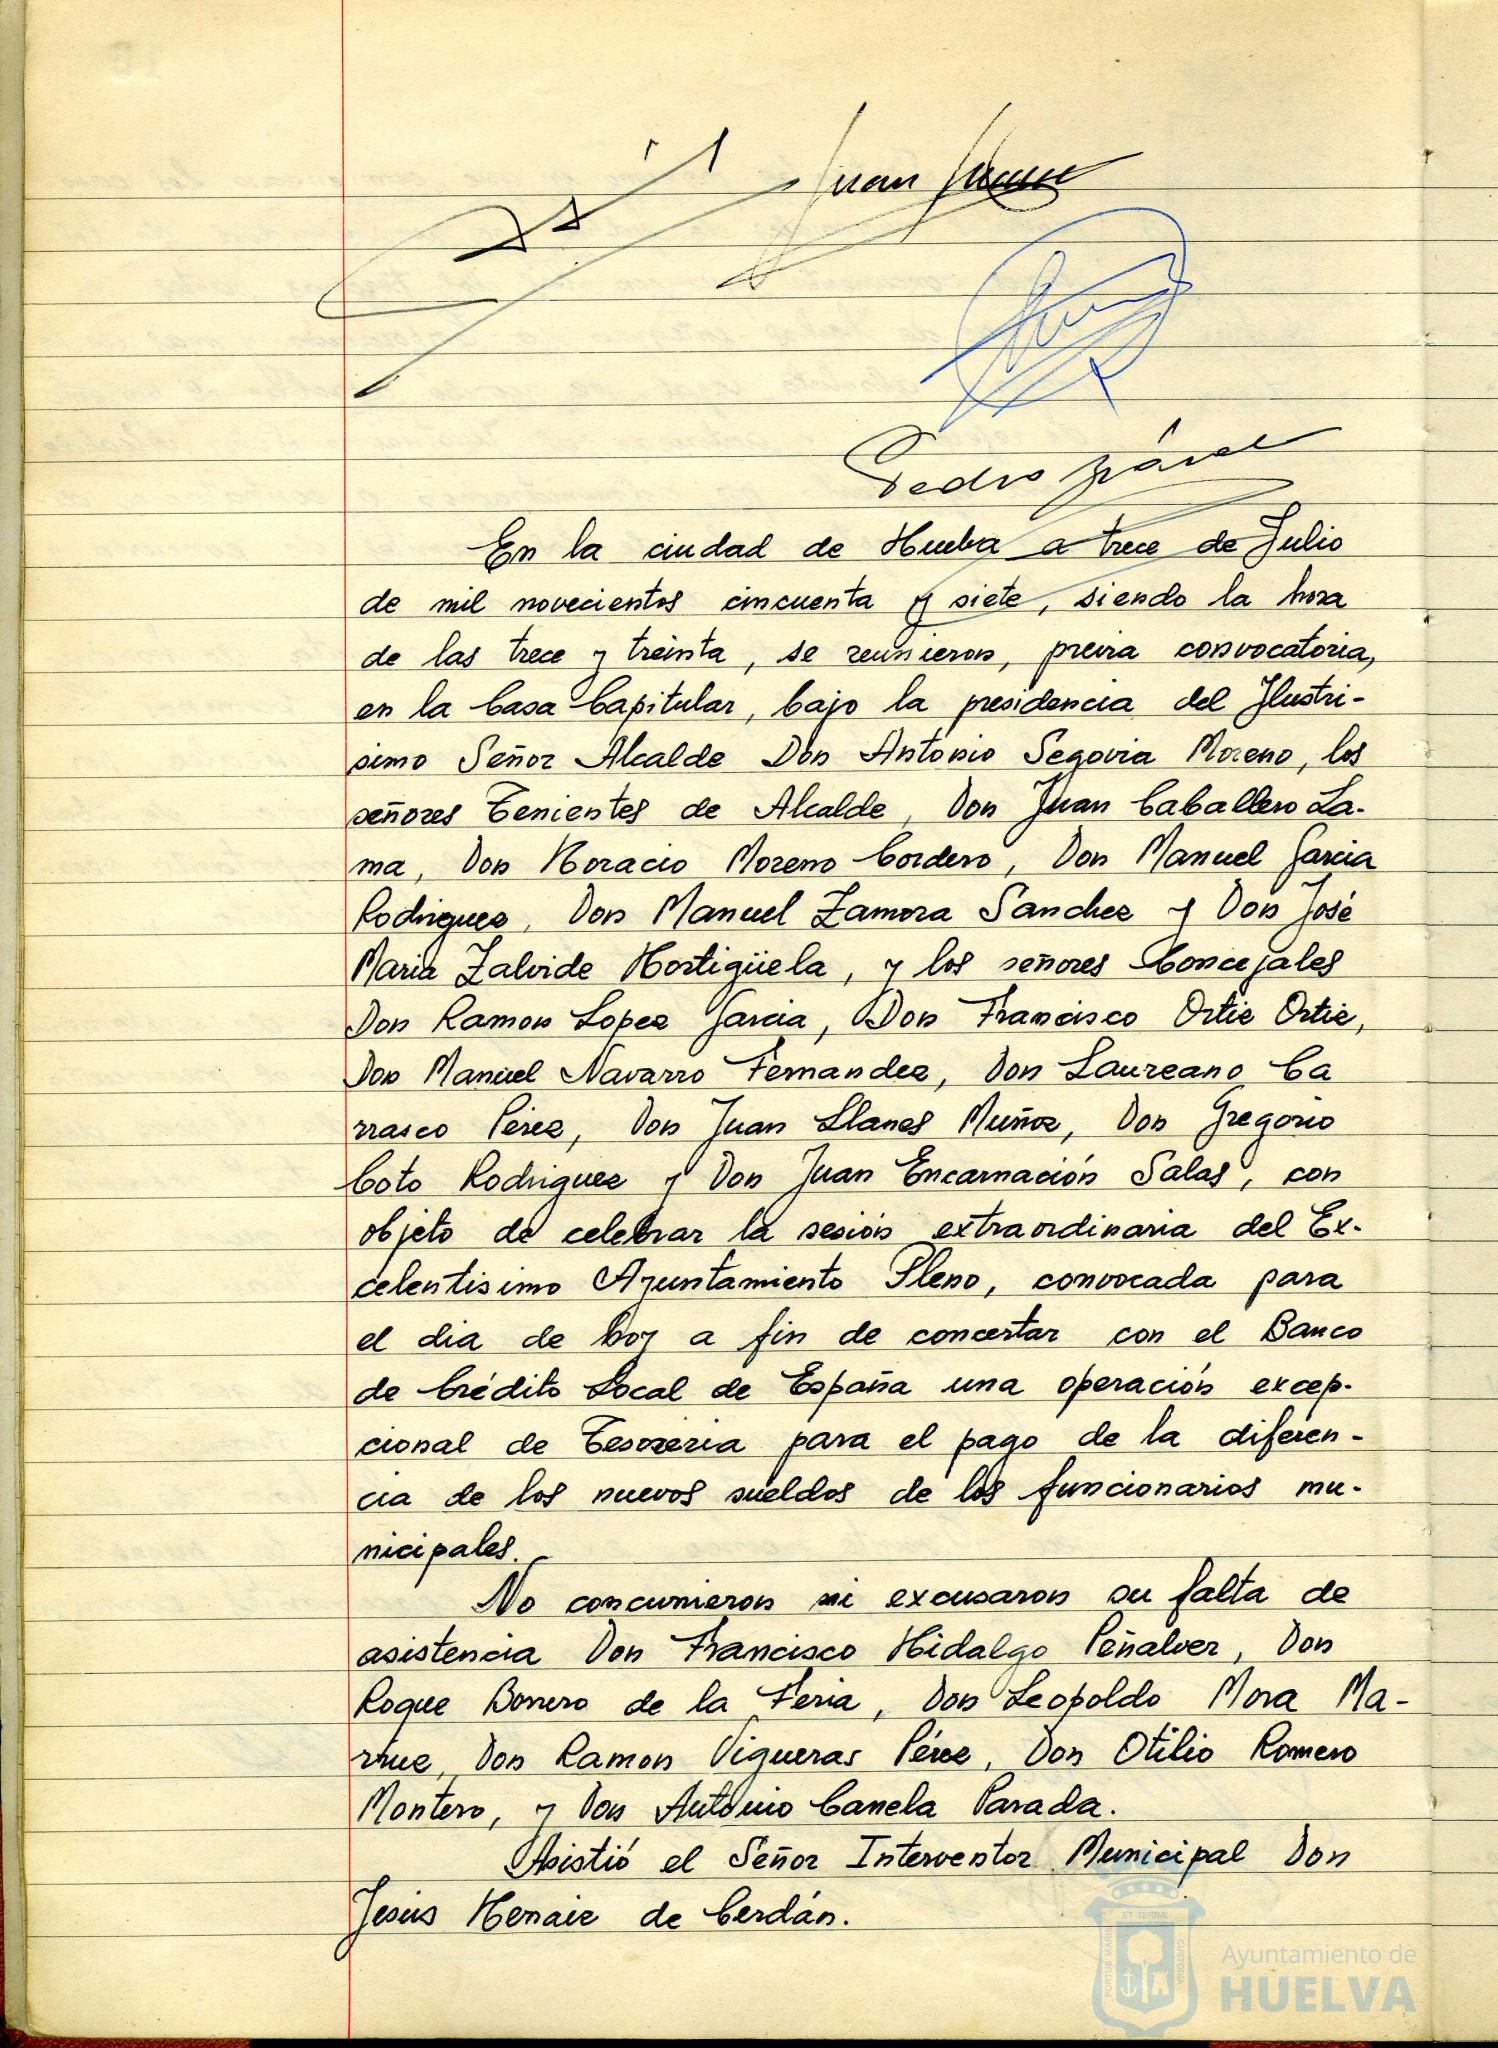 Juan
Pedro
En la ciudad de Huelva a trece de Julio
de mil novecientos cincuenta y siete, siendo la hora
de las trece y treinta, se reunieron, previa convocatoria,
en la Casa Capitular, bajo la presidencia del Ilustri-
simo Señor Alcalde Don Antonio Segovia Moreno, los
señores Tenientes de Alcalde, Don Juan Caballero La-
ma, Don Horacio Moreno Cordero, Don Manuel Garcia
Rodriguez, Don Manuel Zamora Sanchez y Don José
Maria Zalvide Hortigüela, y los señores Concejales
Don Ramon Lopez Garcia, Don Francisco Ortiz Ortiz,
Don Manuel Navarro Fernandez, Don Laureano Ca
rrasco Pérez, Don Juan Llanes Muñoz, Don Gregorio
Coto Rodriguez y Don Juan Encarnación Salas, con
objeto de celebrar la sesión extraordinaria del Ex-
celentisimo Ayuntamiento Pleno, convocada para
el dia de hoy a fin de concertar con el Banco
de Crédito Local de España una operación excep-
cional de Tesoreria para el pago de la diferen-
cia de los nuevos sueldos de los funcionarios mu-
nicipales.
No concurrieron ni excusaron su falta de
asistencia Don Francisco Hidalgo Peñalver, Don
Roque Borrero de la Feria, Don Leopoldo Mora Ma-
Don Ramon Vigueras Pérez, Don Otilio Romero
Montero, y Don Antonio Canela Parada.
Asistió el Señor Interventor Municipal Don
Jesús de Cerdán.
PORTUS MARIS ET TERRÆ CUSTODIA
Ayuntamiento de
HUELVA